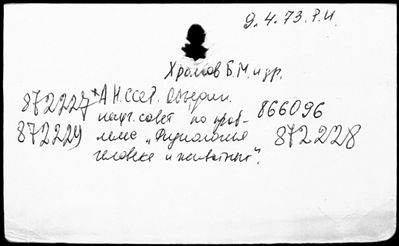 9.4.73.Р.И
Храмов Б.М. и др.
872227 * АН СССР. Объедин.
научн. совет по проб- 866096
872229 леме „Физиология 872228
человека и животных".